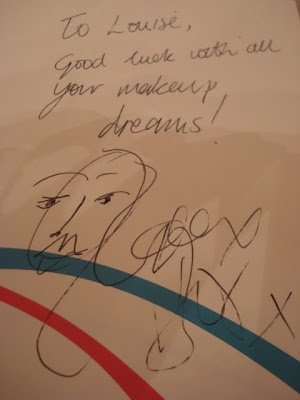 To Louise,
Good luck with all
your makeup
dreams!
x